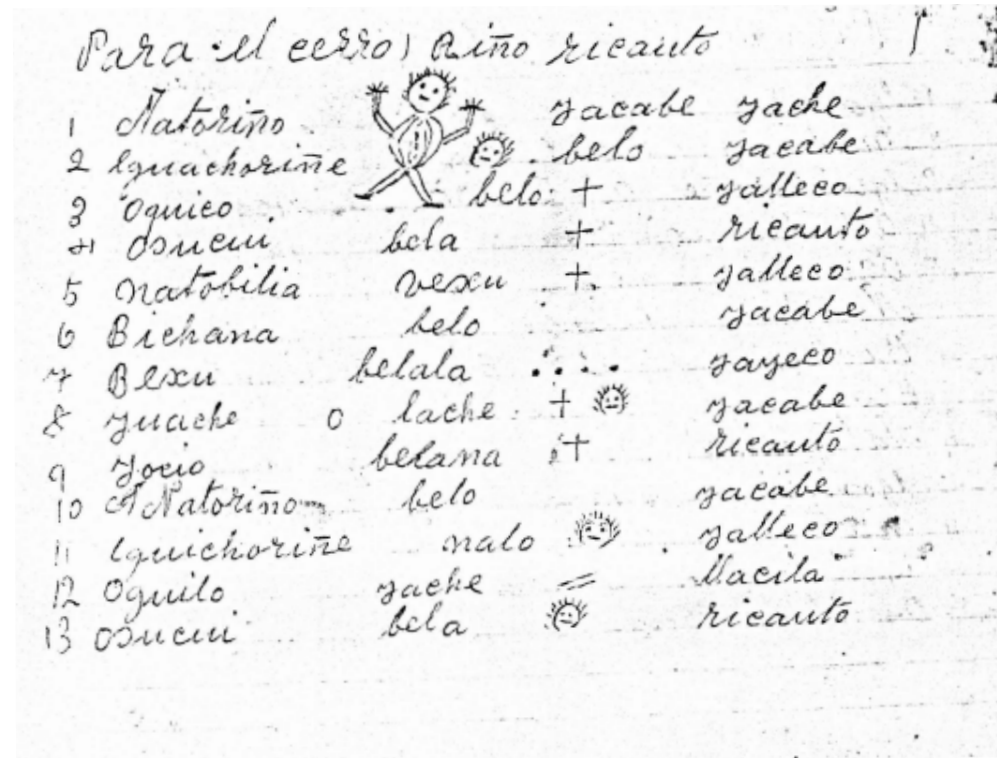 Para el cerro) Riño ricauto
1 Natoriño yacabe yache
2 Iguachoriñe belo yacabe
3 Oguico belo + yalleco
4 Osucui bela + ricauto
5 Natobilia vexu + yalleco
6 Bichana belo yacabe
7 Bexu belala .... yayeco
8 Yuache o lache + yacabe
9 Yocio belana + ricauto
10 Natoriño belo yacabe
11 Iguichoriñe nalo yalleco
12 Oguilo yache = llacila
13 Osucui bela ricauto